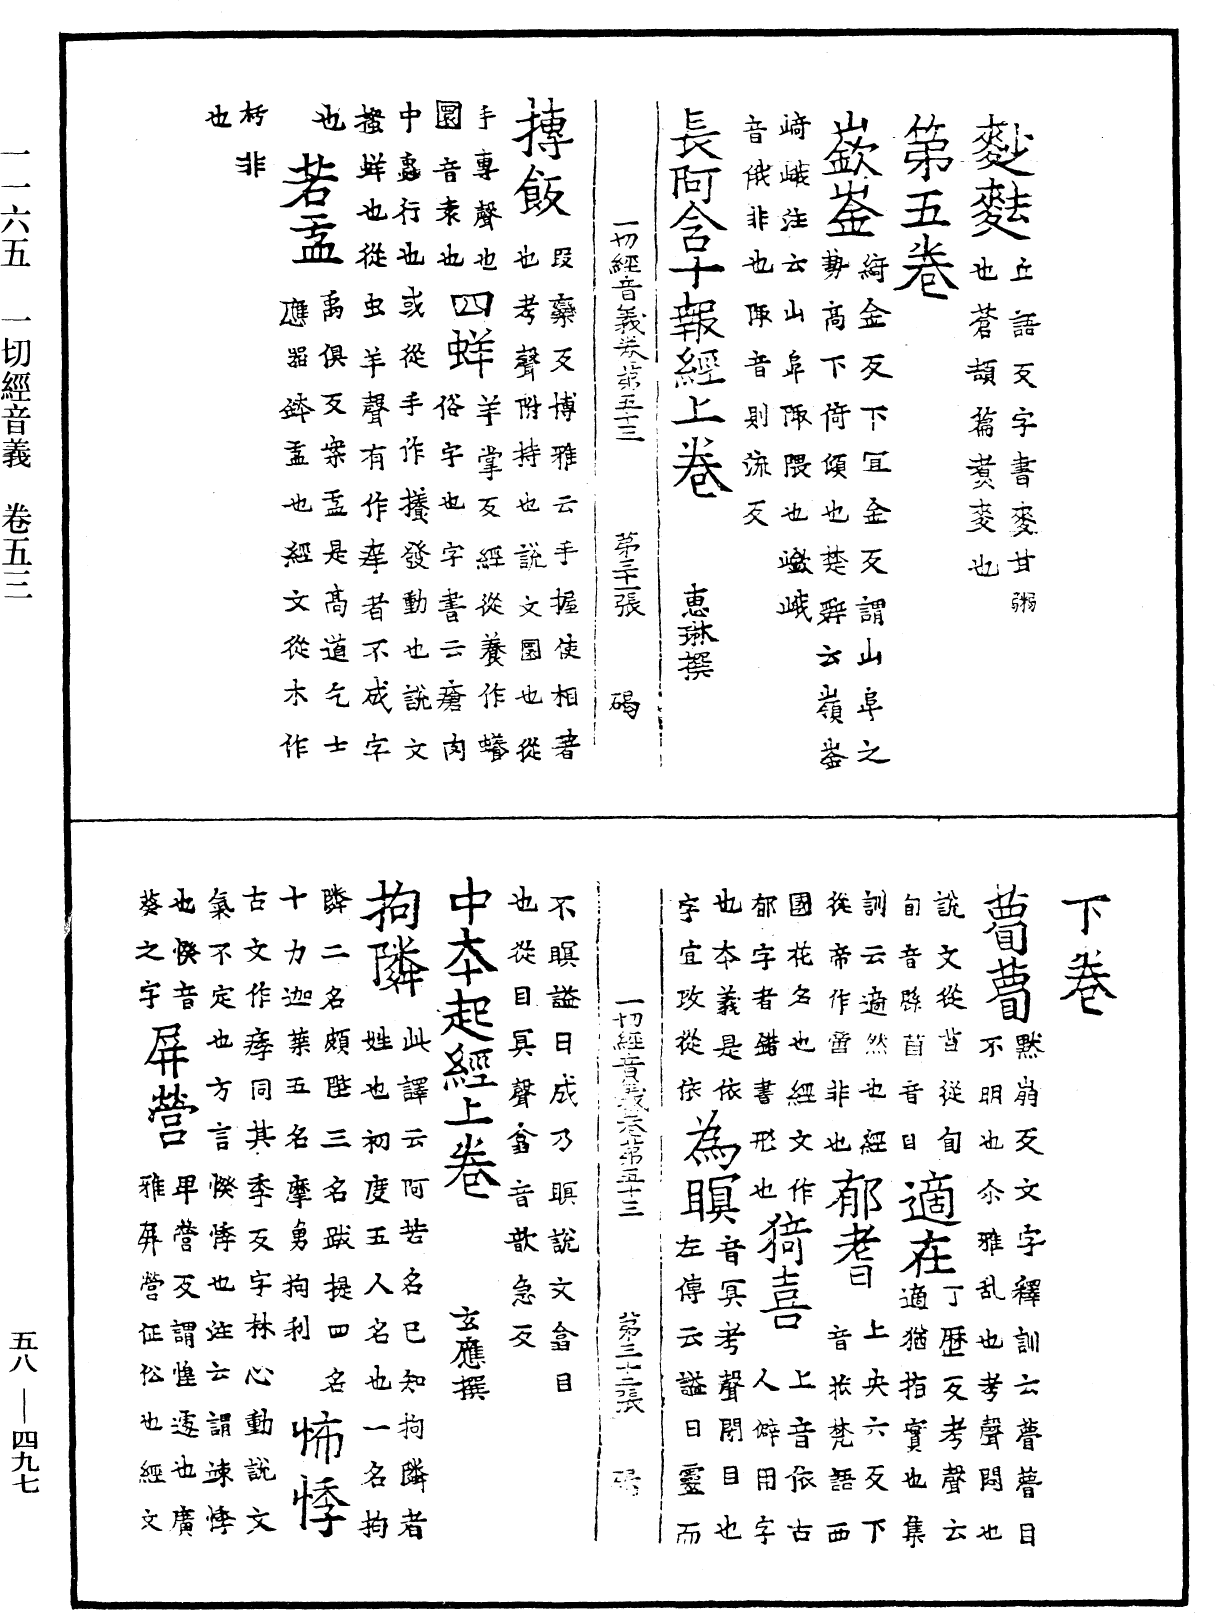 麨麮
丘語反字書麥甘粥
也蒼頡篇煑麥也
第五卷
嶔崟
綺金反下冝金反謂山阜之
勢髙下倚傾也楚辭云嶺崟
﨑峨注云山阜陬隈也巇峨
音俄非也陬音則流反
長阿含十報經上卷
惠琳撰
一切經音義卷第五十三 第三十一張 碣
摶飯
段欒反博雅云手握使相著
也考聲附持也說文圜也從
手專聲也
圜音袁也
四蛘
羊掌反經從養作蠰
俗字也字書云瘡肉
中蟲行也或從手作攁發動也說文
搔蛘也從虫羊聲有作痒者不成字
也
若盂
禹俱反案盂是髙道乞士
應器鉢盂也經文從木作
杅非
也
下卷
瞢瞢
黙崩反文字釋訓云瞢瞢目
不明也尒雅乱也考聲悶也
說文從苜從旬
旬音縣苜音目
適在
丁歷反考聲云
適猶指實也集
訓云適然也經
從帝作啻非也
郁耆
上央六反下
音祇梵語西
國花名也經文作
郁字者錯書形也
猗喜
上音依古
人僻用字
也本義是依
字宜攻從依
為瞑
音冥考聲閇目也
左傳云謚曰靈而
一切經音義卷第五十三 第三十二張
不瞑謚曰成乃瞑說文翕目
也從目冥聲翕音歆急反
中本起經上卷
玄應撰
拘隣
此譯云阿若名已知拘隣者
姓也初度五人名也一名拘
隣二名頞陛三名跋提四名
十力迦葉五名摩男拘利
怖悸
古文作痵同其季反字林心動說文
氣不定也方言悸悸也注云謂悚悸
也悸音
葵之字
屏營
卑營反謂惶遽也廣
雅屏營怔忪也經文
一一六五 一切經音義 卷五三
五八—四九七